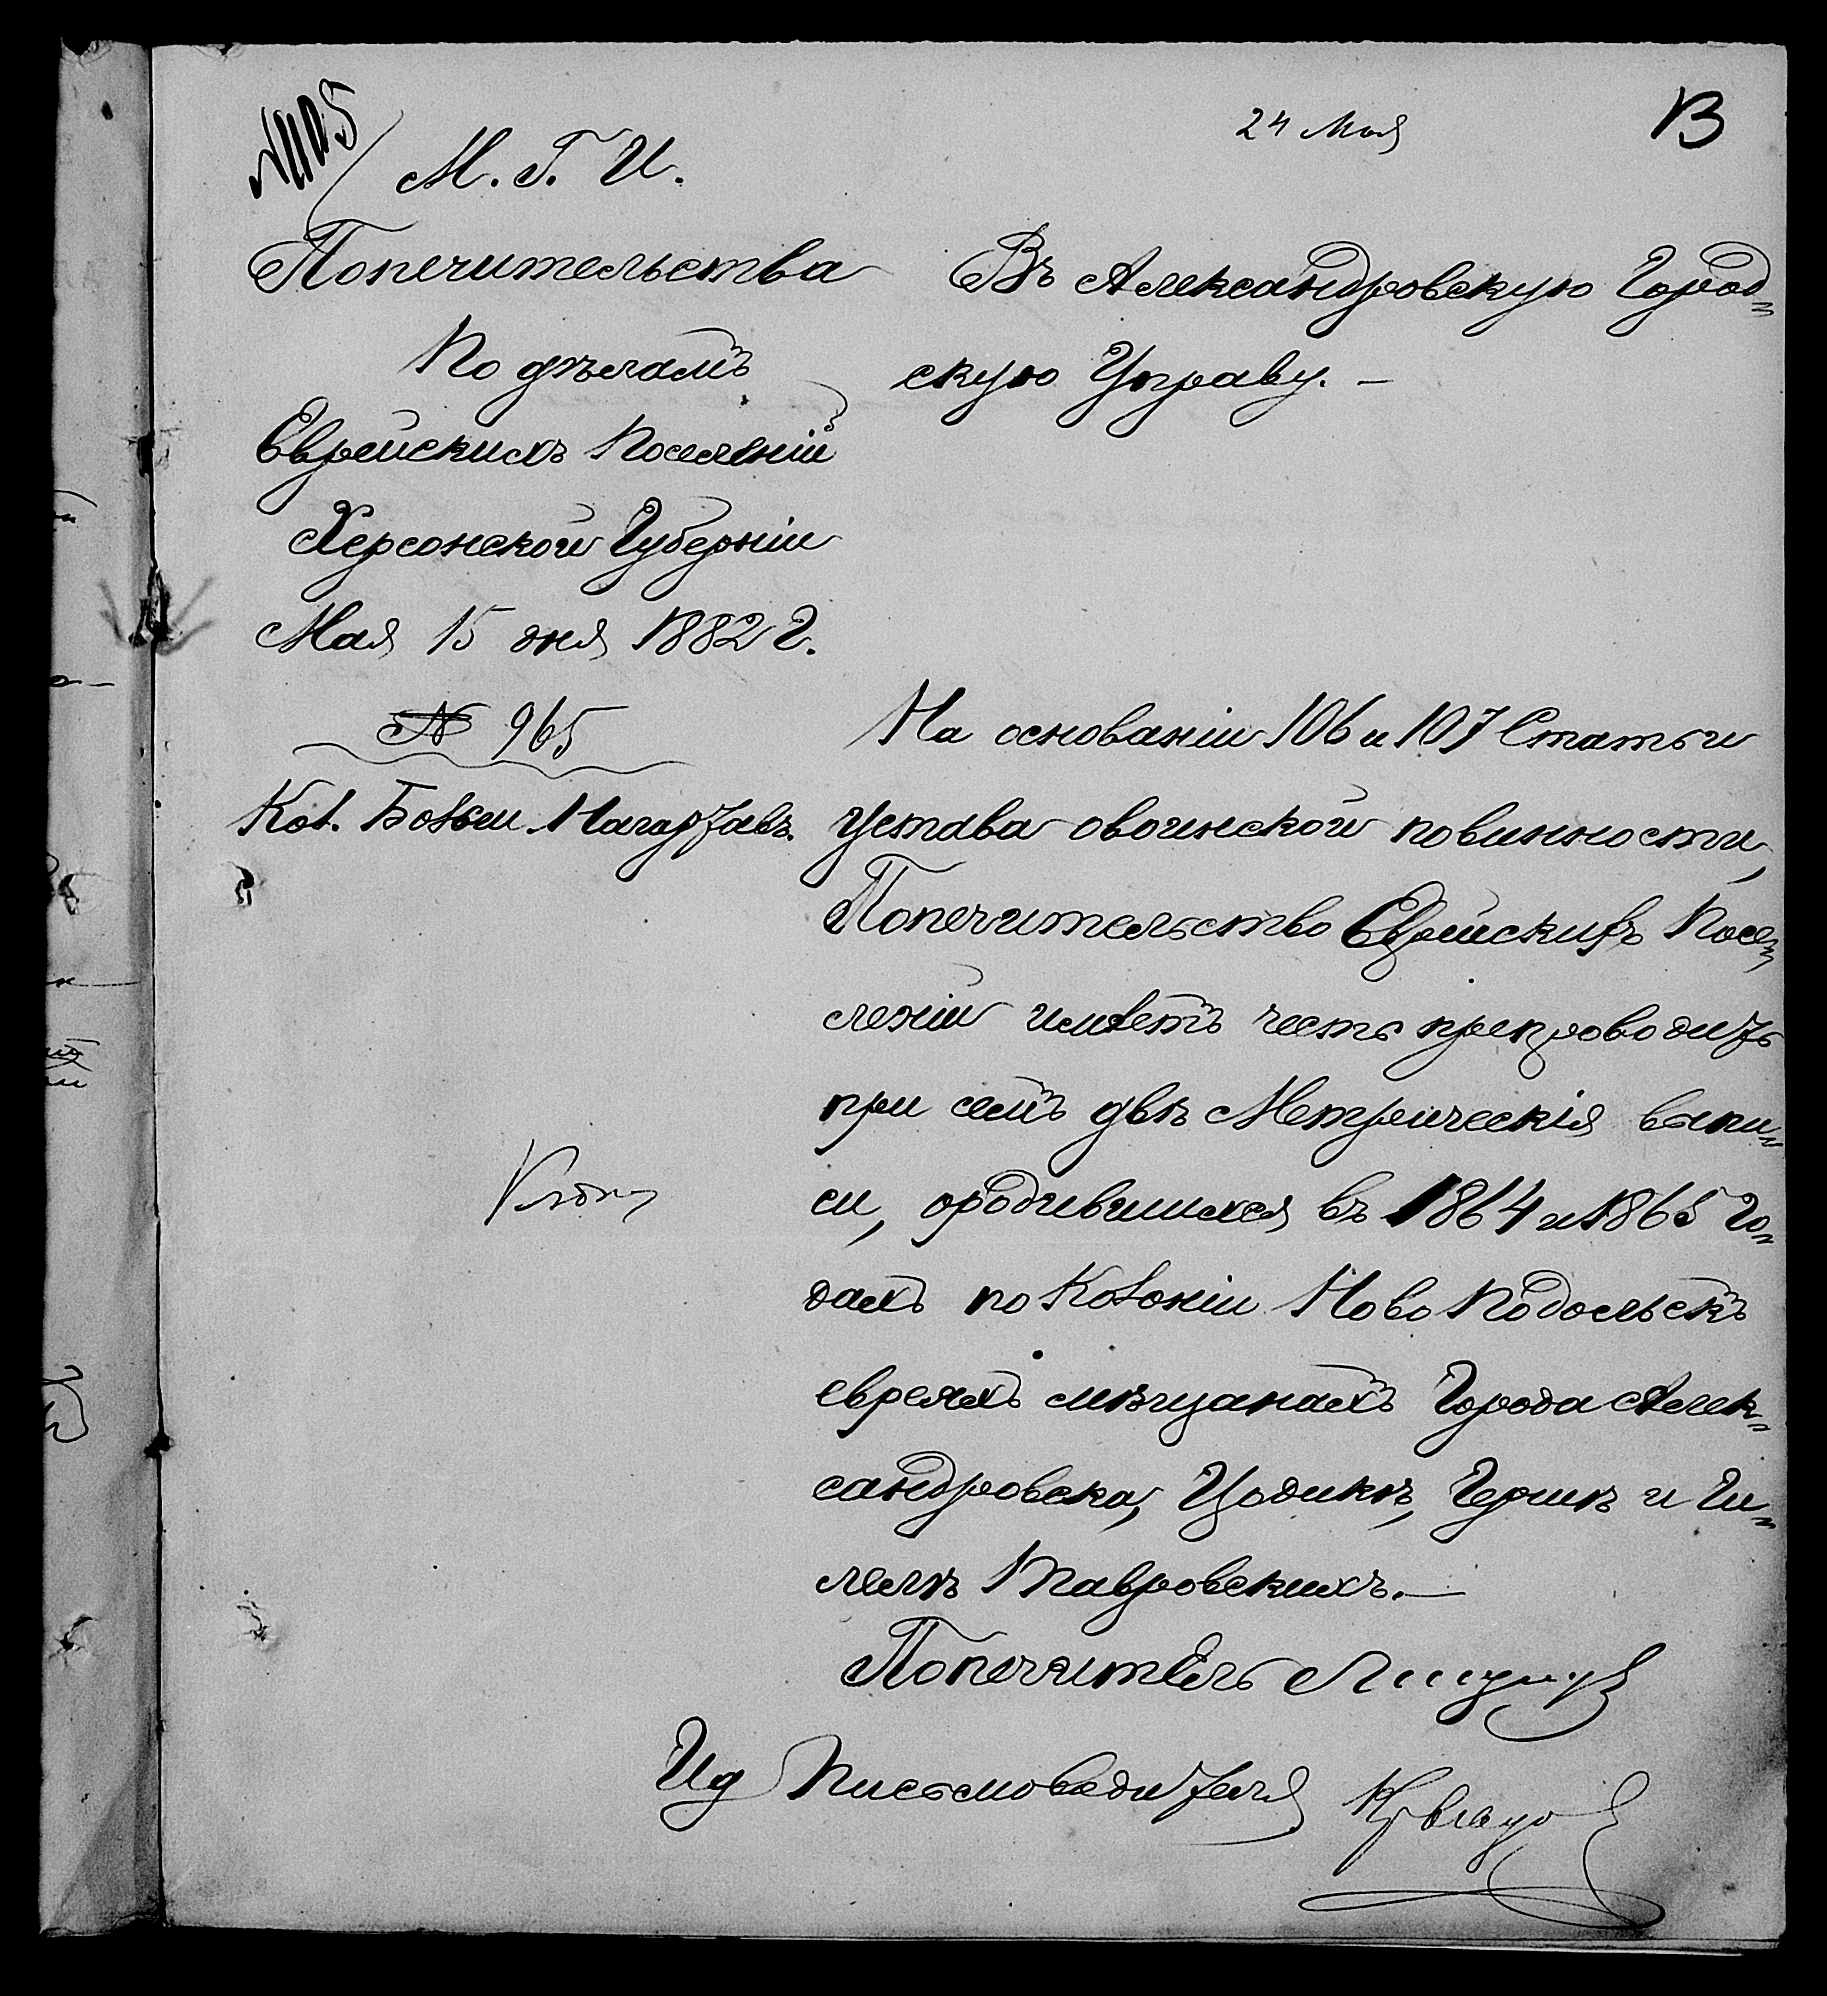 24 Мая
13
М. Г. И.
Попечительства
По дѣламъ
Еврейскихъ Поселеній
Херсонской Губерніи
Мая 15 дня 1882 г.
№ 965
Кол. Большой Нагартавъ.
Въ Александровскую Город-
скую Управу. –
На основаніи 106 и 107 Статьи
Устава о воинской повинности,
Попечительство Еврейскихъ Посе-
леній имѣетъ честь препроводить
при семъ двѣ Метрическія выпи-
си, о родившихся въ 1864 и 1865 го-
дахъ по Колоніи Ново Подольскъ
евреяхъ мѣщанахъ Города Алек-
сандровска, Цодикѣ, Гершкѣ и Ги-
лелѣ Тавровскихъ. –
Попечитель
И д Письмоводителя